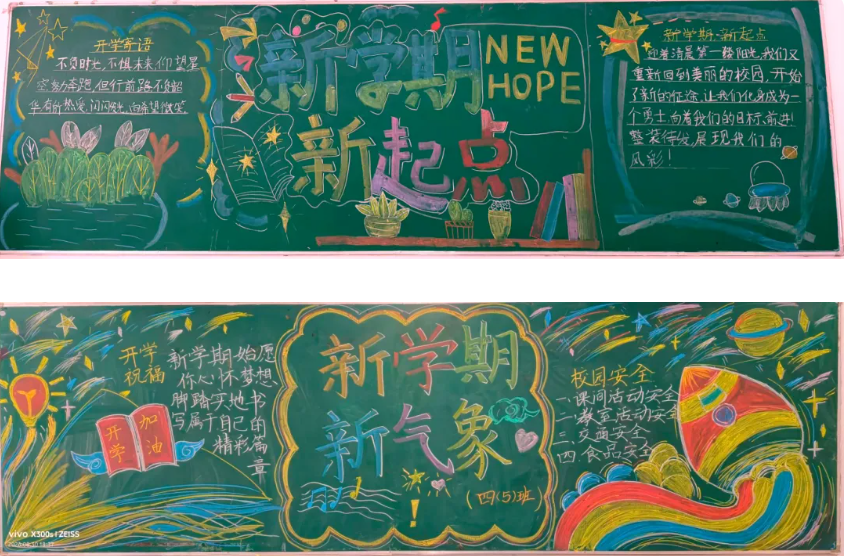 开学寄语
不负时光,不惧未来,仰望星
空努力奔跑,但行前路,不负韶
华,有所热爱,闪闪发光,向希望微笑
新学期
新起点
NEW
HOPE
新学期·新起点
迎着清晨第一缕阳光,我们又
重新回到美丽的校园,开始
了新的征途,让我们化身成为一
个勇士,向着我们的目标,前进!
整装待发,展现我们的
风彩!
开学
祝福
新学期始愿
你心怀梦想
脚踏实地书
写属于自己的
精彩篇
章
开学
加油
新学期
新气象
(四(5)班)
校园安全
一、课间活动安全
二、教室活动安全
三、交通安全
四、食品安全
vivo X300s | ZEISS